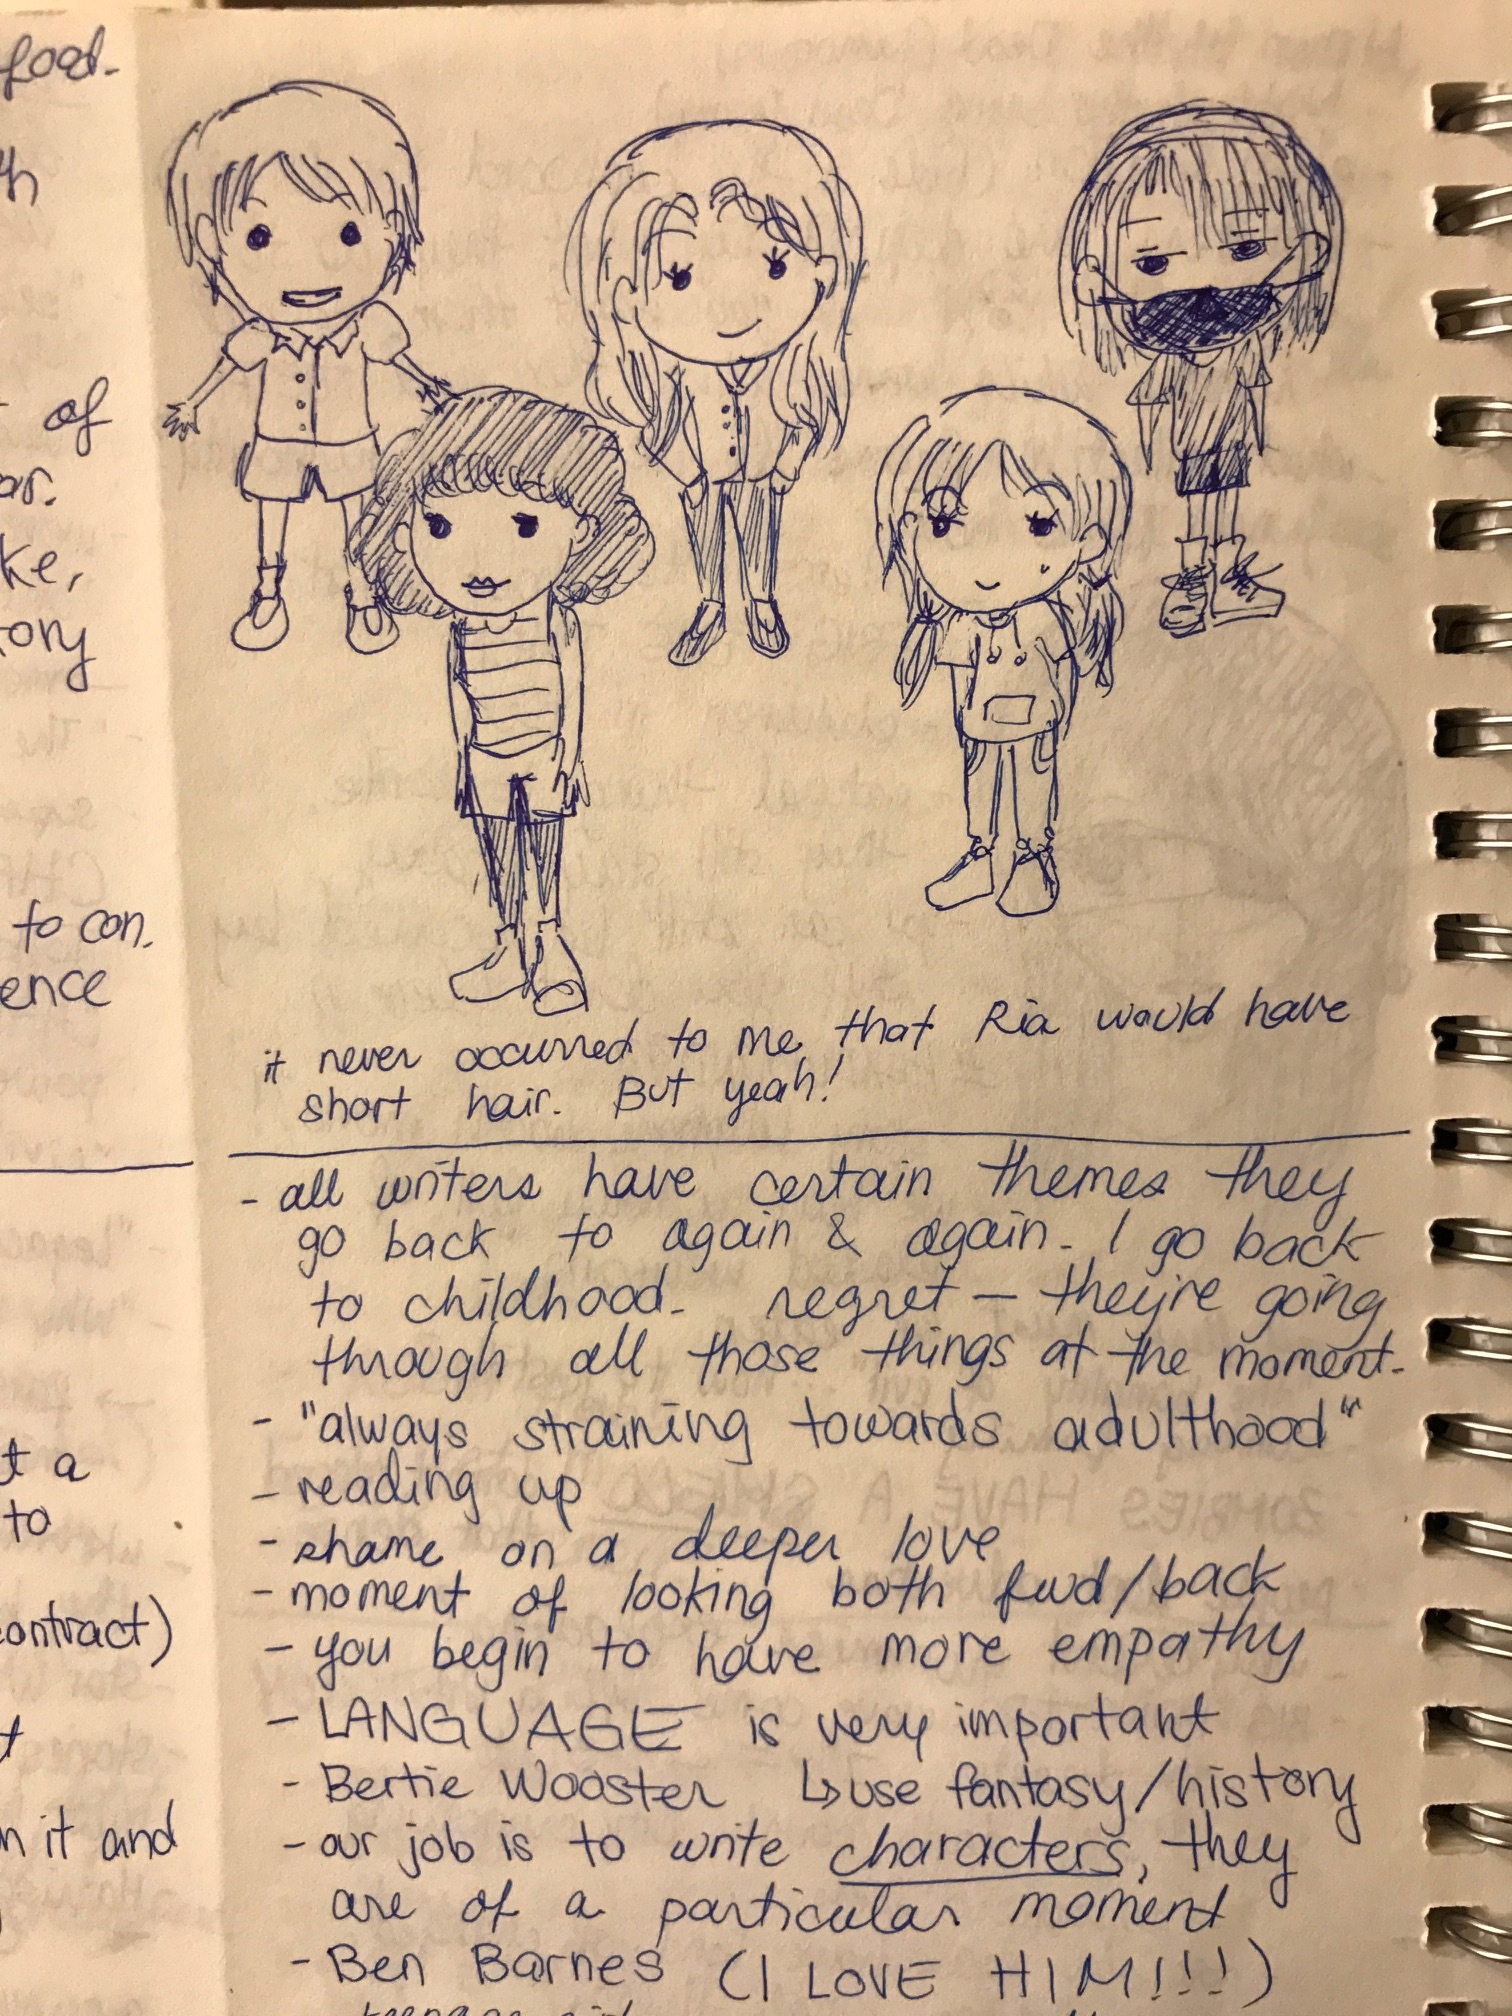 food.
of
ar.
ke,
tory
to con.
ence
t a
to
contract)
n it and
it never occurred to me that Ria would have
short hair. But yeah!
- all writers have certain themes they
go back to again & again. I go back
to childhood. regret – they're going
through all those things at the moment.
- "always straining towards adulthood"
- reading up
- shame on a deeper love
- moment of looking both fwd/back
- you begin to have more empathy
- LANGUAGE is very important
- Bertie Wooster ↳ use fantasy/history
- our job is to write characters, they
are of a particular moment
- Ben Barnes (I LOVE HIM!!!)